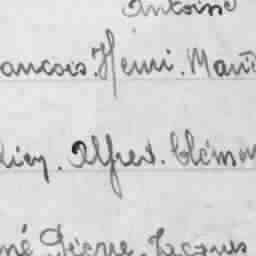 Antoine
ancois. Henri. Mari
lien. Alfred. Clémen
né Pierre. Jacques